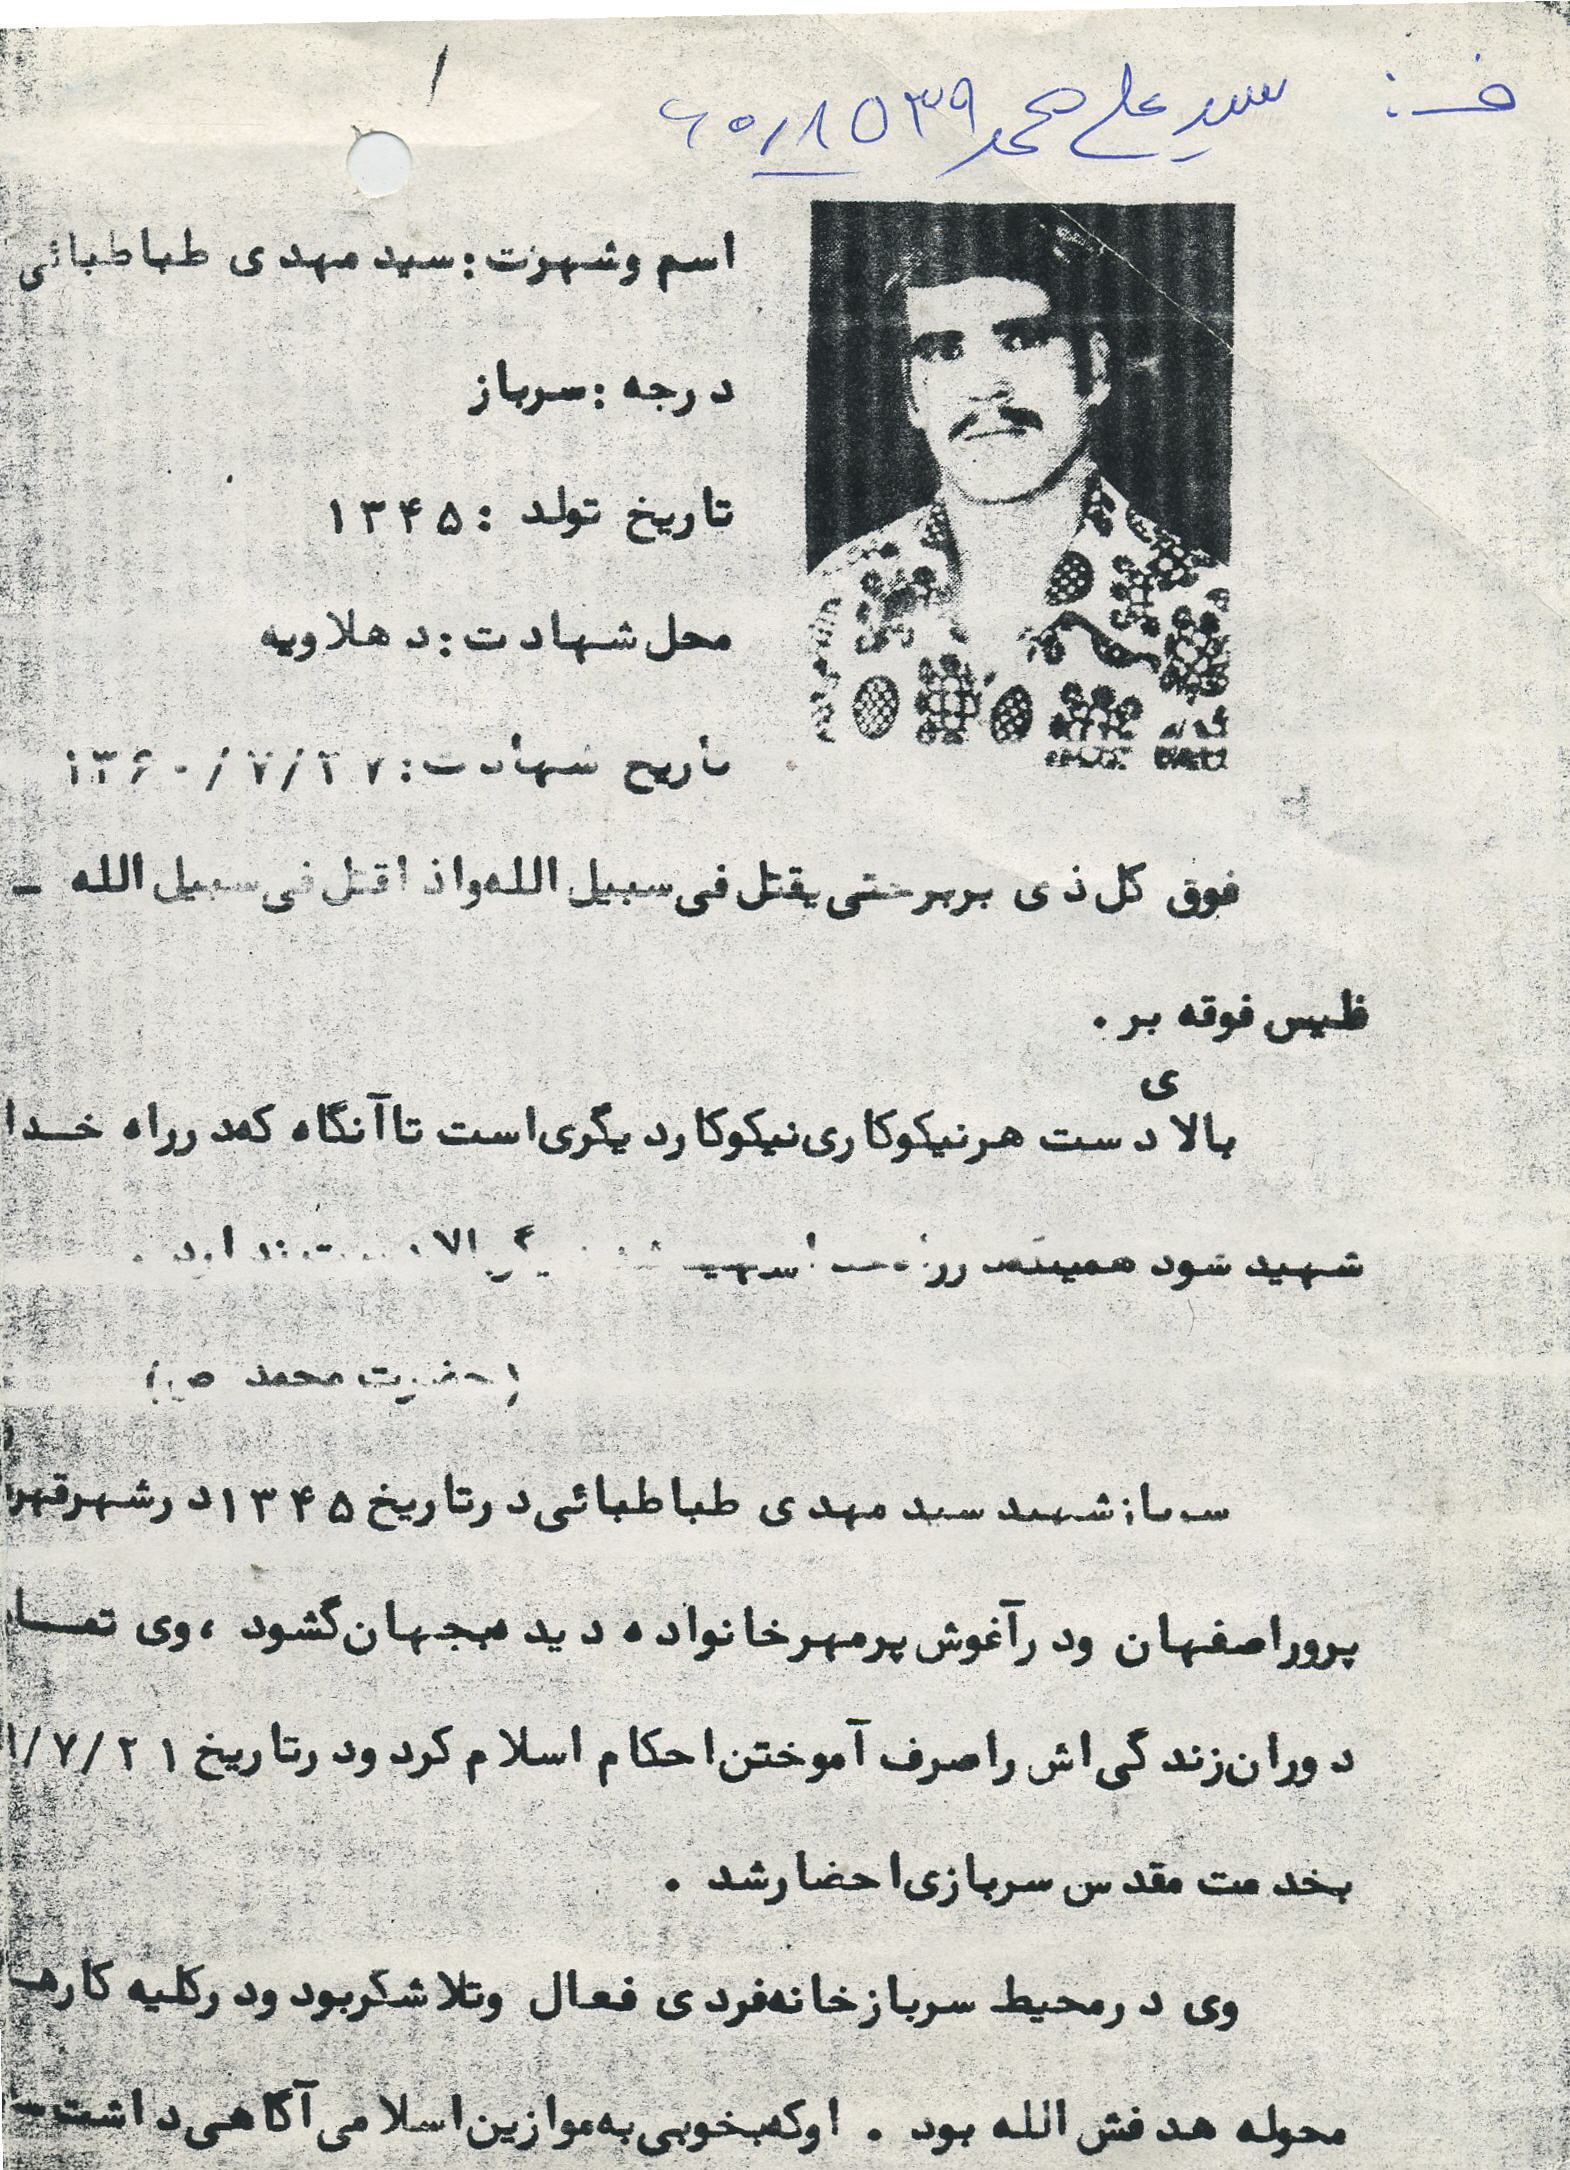 ف: سید علی محمد ۶۰۱۸۵۳۹
۱
اسم وشهرت:سید مهدی طباطبائی
درجه :سرباز
تاریخ تولد :۱۳۴۵
محل شهادت:دهلاویه
تاریخ شهادت:۱۳۶۰/۷/۲۷
فوق کل ذی بربرحتی یقتل فی سبیل الله واذا قتل فی سبیل الله -
فلیس فوقه بر .
ی
بالا دست هرنیکوکاری نیکوکاردیگری است تاآنگاه که درراه خدا
شهید شود همینکه درراه خدا شهید شد دیگر بالا دست ندارد .
(حضرت محمد ص)
سرباز شهید سید مهدی طباطبائی درتاریخ ۱۳۴۵ درشهرقهر
پروراصفهان ودرآغوش پرمهرخانواده دیده بجهان گشود ، وی تما
دوران زندگی اش راصرف آموختن احکام اسلام کرد ودرتاریخ ۱/۷/۲۱
بخدمت مقدس سربازی احضارشد .
وی درمحیط سربازخانه فردی فعال وتلاشگربود ودرکلیه کارهـ
محوله هدفش الله بود . اوکه بخوبی به موازین اسلامی آگاهی داشت -